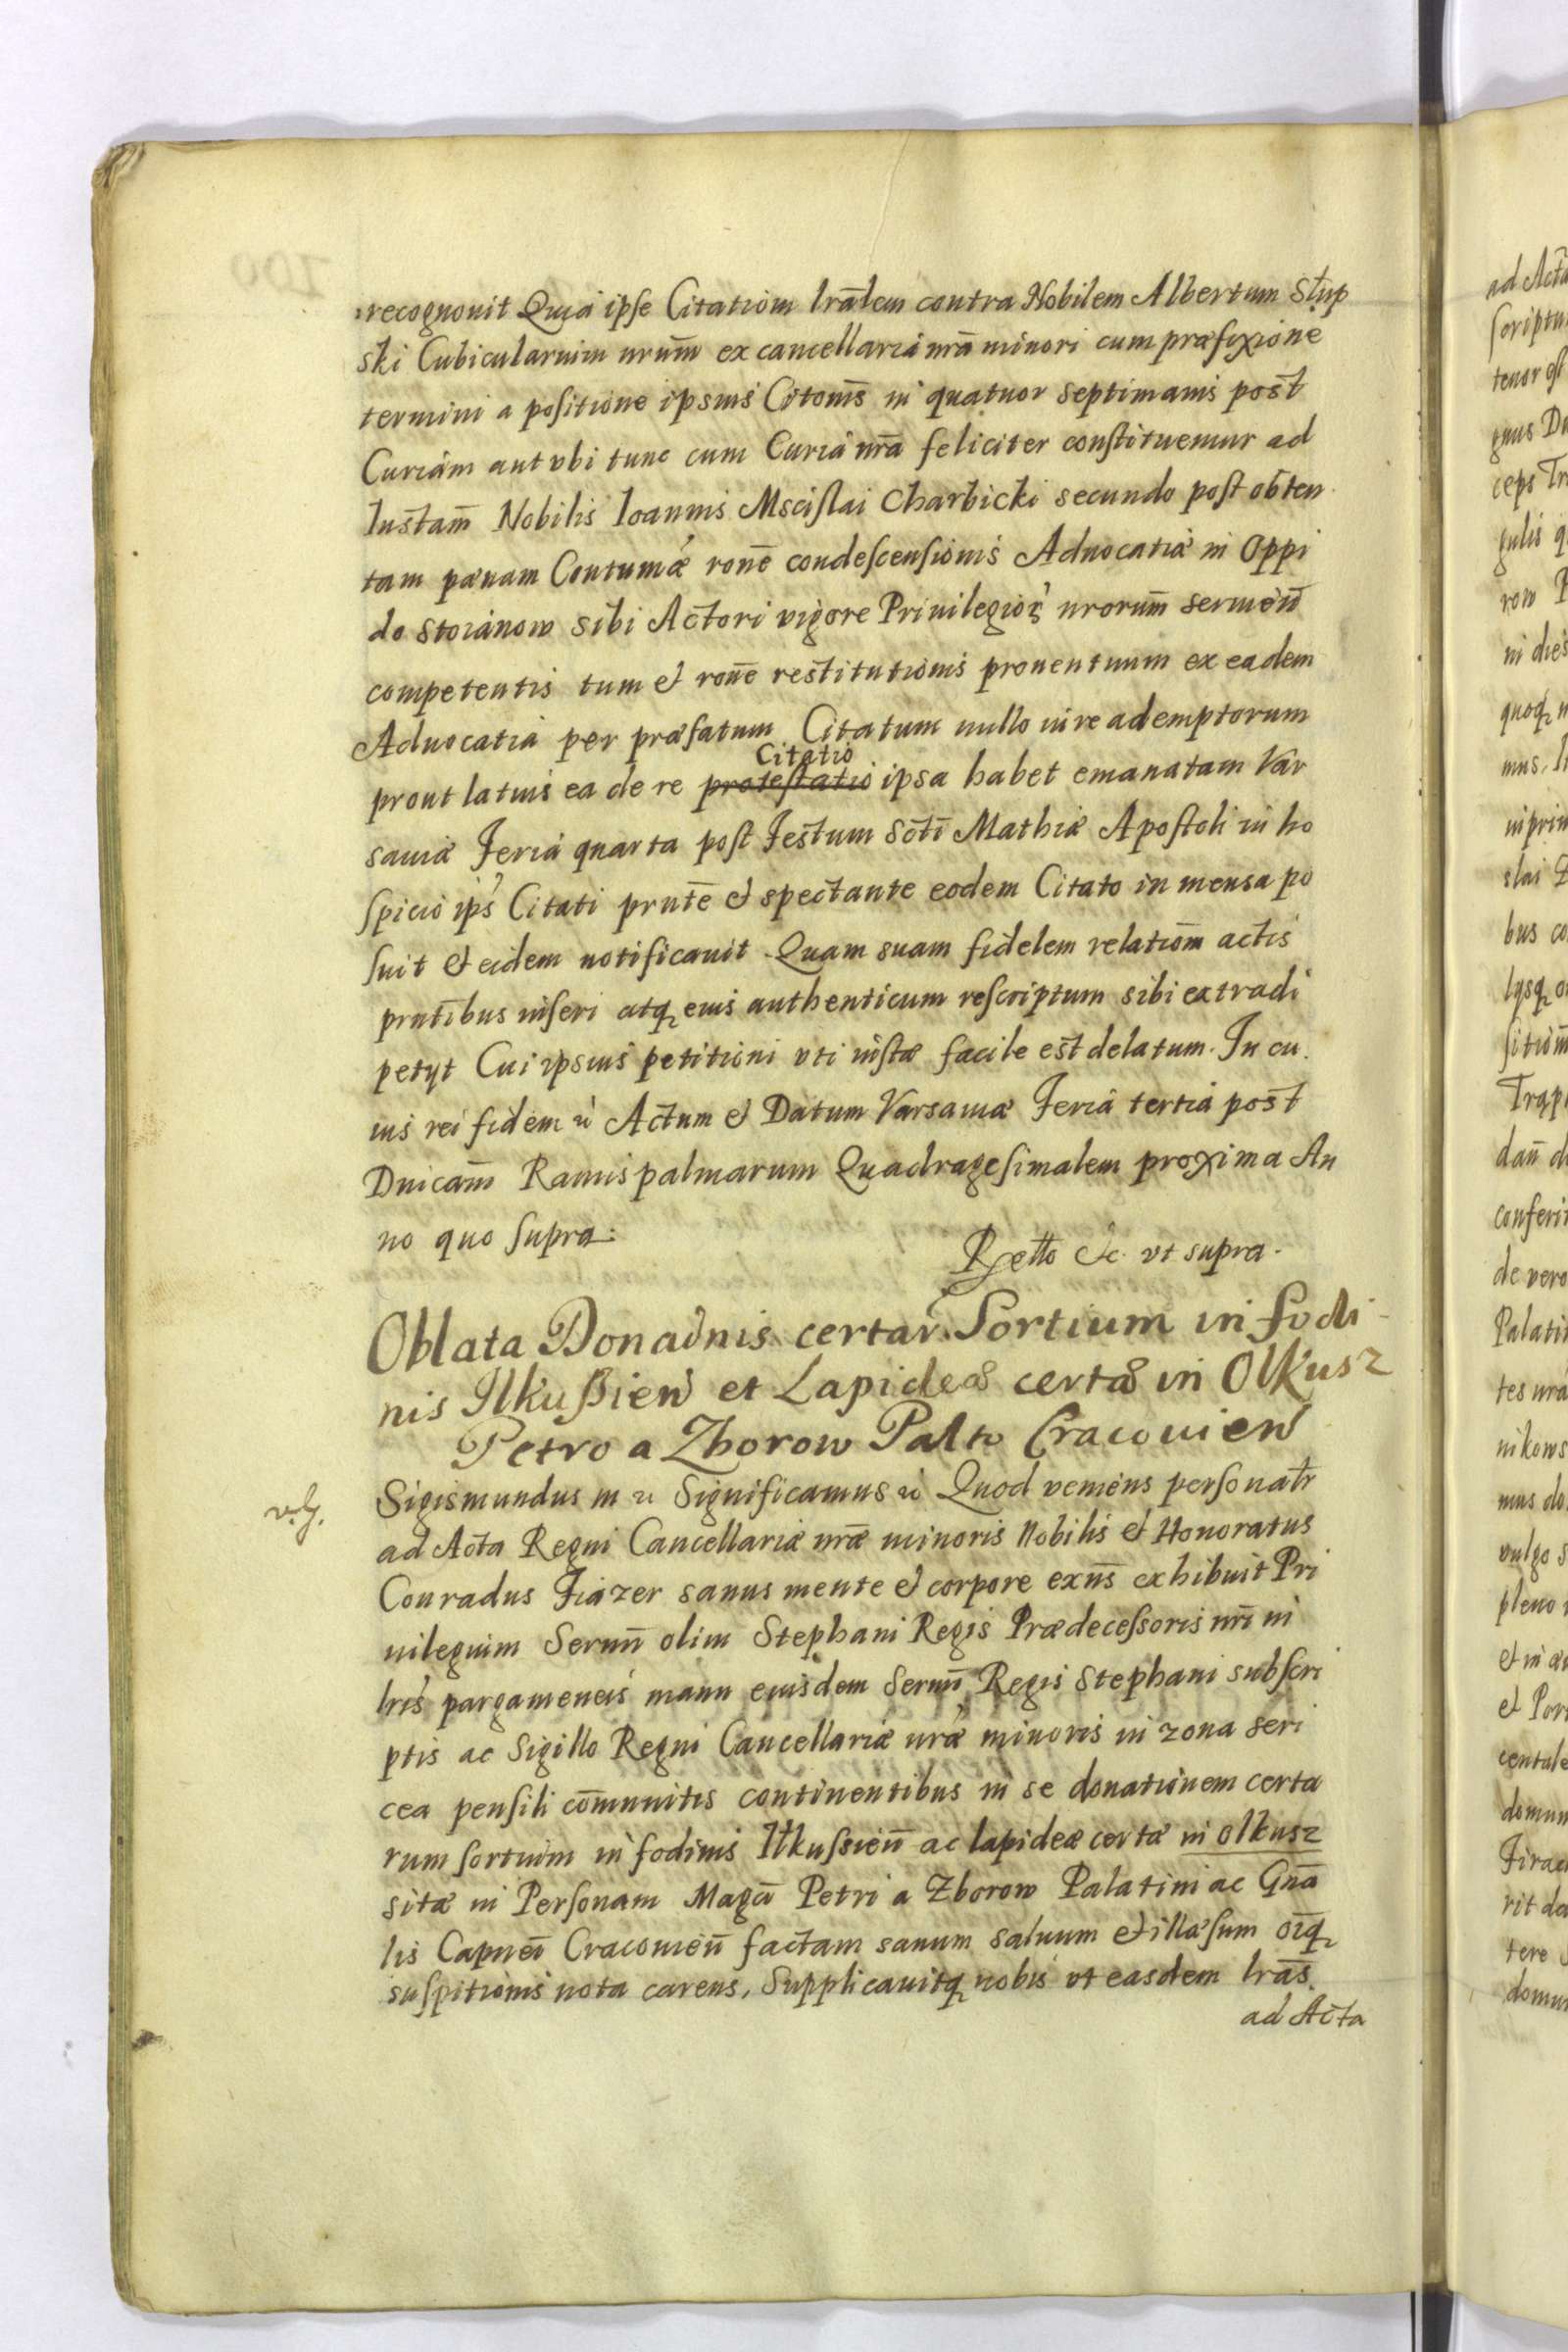 recognouit Quia ipse Citationm lrãlem contra Nobilem Albertum Słup
ski Cubicularium nrum̃ ex cancellaria nrã minori cum præfixione
termini a positione ipsius Citonis̃ in quatuor septimanis post
Curiam aut vbi tunc cum Curia nrã feliciter constituemur ad
Instam̃ Nobilis Ioannis Mscislai Charbicki secundo post obten
tam pænam Contumaæ ronẽ condescensionis Aduocatiæ in Oppi
do Stoianow sibi Actori vigore Priuilegior. nrorum̃ seruieñ
competentis tum et ronẽ restitutionis prouentuum ex eadem
Aduocatia per præfatum Citatum nullo iure ademptorum
Citatio
prout latius ea de re protestatio ipsa habet emanatam Var
sauiæ Feria quarta post Festum Scti Mathiæ Apostoli in ho
spicio ips Citati pruntẽ et spectante eodem Citato in mensa po
suit et eidem notificauit. Quam suam fidelem relationm̃ actis
pruntibus inseri atq eius authenticum rescriptum sibi extradi
petyt Cui ipsius petitioni vti iustæ facile est delatum. In cu
ius rei fidem Actum et Datum Varsauiæ Feria tertia post
Dnicam̃ Ramispalmarum Quadragesimalem proxima An
no quo supra.
Rello etc. vt supra.
Oblata Donaonis certar. Sortium in fodi
nis Ilkussień et Lapideæ certæ in Olkusz
Petro a Zborow Palto Cracouień
Sigismundus III Significamus Quod veniens personalr
v.g. ad Acta Regni Cancellariæ nræ minoris Nobilis et Honoratus
Conradus Fiazer sanus mente et corpore exns̃ exhibuit Pri
uilegium Serenñ olim Stephani Regis Prædecessoris nri in
lris pargameneis manu eiusdem Serenñ Regis Stephani subscri
ptis ac Sigillo Regni Cancellariæ nræ minoris in zona seri
cea pensili cõmunitis continentibus in se donationem certa
rum sortium in fodinis Ilkussieñ ac lapideæ certæ in Olkusz
sitæ in Personam Magci Petri a Zborow Palatini ac Gñã
lis Capnei Cracouieñ factam sanum saluum et illæsum oiq
suspitionis nota carens, Supplicauitq nobis vt easdem lrãs
ad Acta